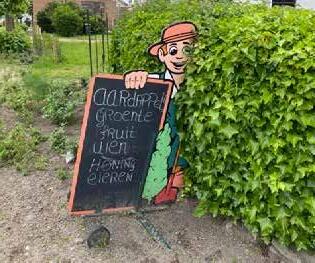 aardappel
Groente
fruit
uien
HONING
eieren